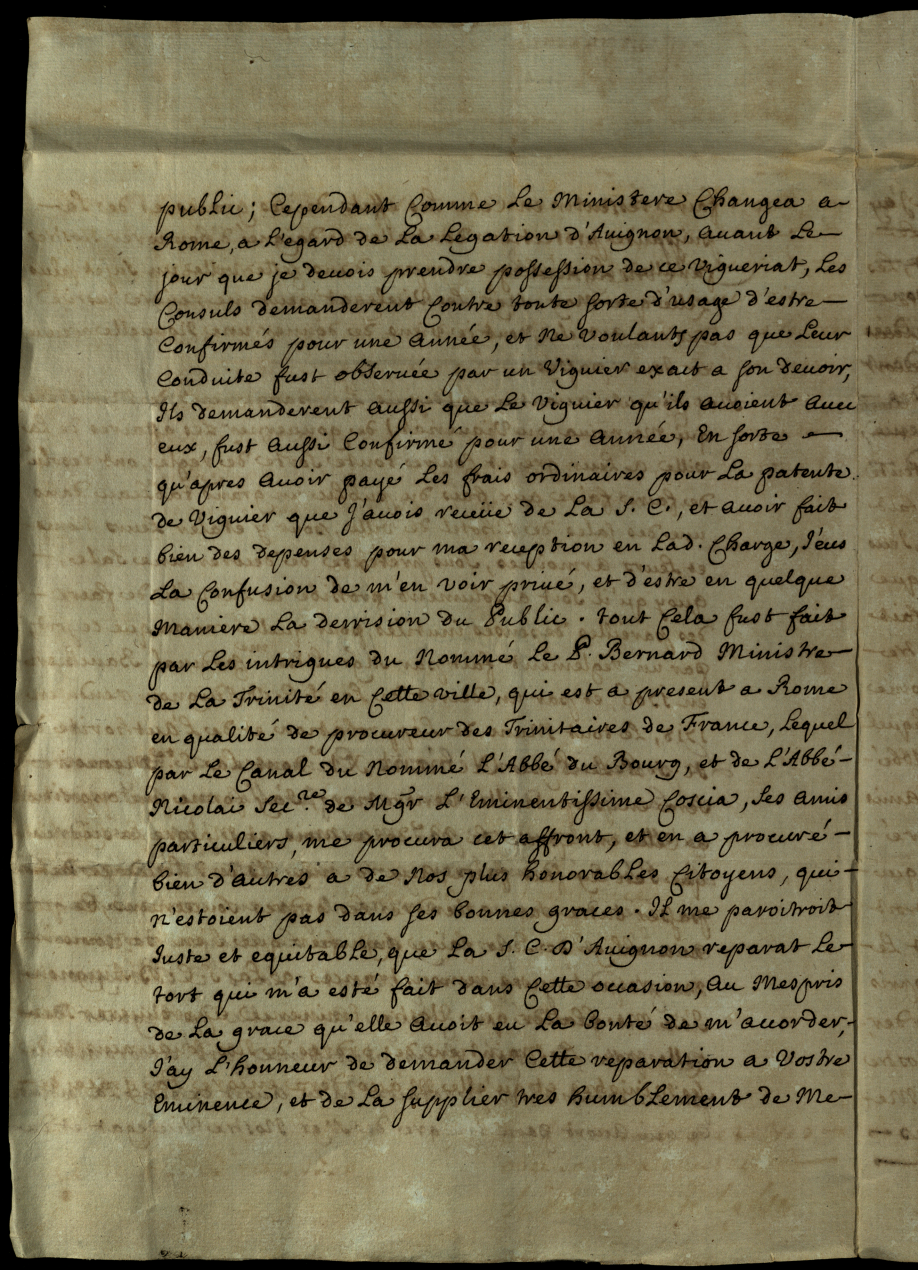 public; Cependant Comme Le Ministere Changea a
Rome, a L'egard de La Legation d'Auignon, auant Le
jour que je deuois prendre possession de ce Vigueriat, Les
Consuls demanderent Contre toute sorte d'usage d'estre
Confirmés pour une Année, et ne voulants pas que Leur
Conduite fust obseruée par un Viguier exact a son deuoir,
Ils demanderent aussi que Le Viguier qu'ils auoient auec
eux, fust aussi Confirmé pour une Année, En sorte
qu'apres auoir payé Les frais ordinaires pour La patente
de Viguier que j'auois receüe de La S. C., et auoir fait
bien des depenses pour ma reception en Lad. Charge, J'eus
La Confusion de m'en voir priué, et d'estre en quelque
Maniere La derrision du Public. tout Cela fust fait
par Les intrigues du Nommé Le P. Bernard Ministre
de La Trinité en Cette ville, qui est a present a Rome
en qualité de procureur des Trinitaires de France, Lequel
par Le Canal du Nommé L'Abbé du Bourg, et de L'Abbé
Nicolai Sec.re de Mgr L'Eminentissime Coscia, ses amis
particuliers, me procura cet affront, et en a procuré
bien d'autres a de Nos plus honorabLes Citoyens, qui
n'estoient pas dans ses bonnes graces. Il me paroitroit
Juste et equitabLe, que La S. C. D'Auignon reparat Le
tort qui m'a esté fait dans Cette occasion, Au Mespris
de La grace qu'elle Auoit eu La bonté de m'accorder,
J'ay L'honneur de demander Cette reparation a Vostre
Eminence, et de La supplier tres humbLement de Me